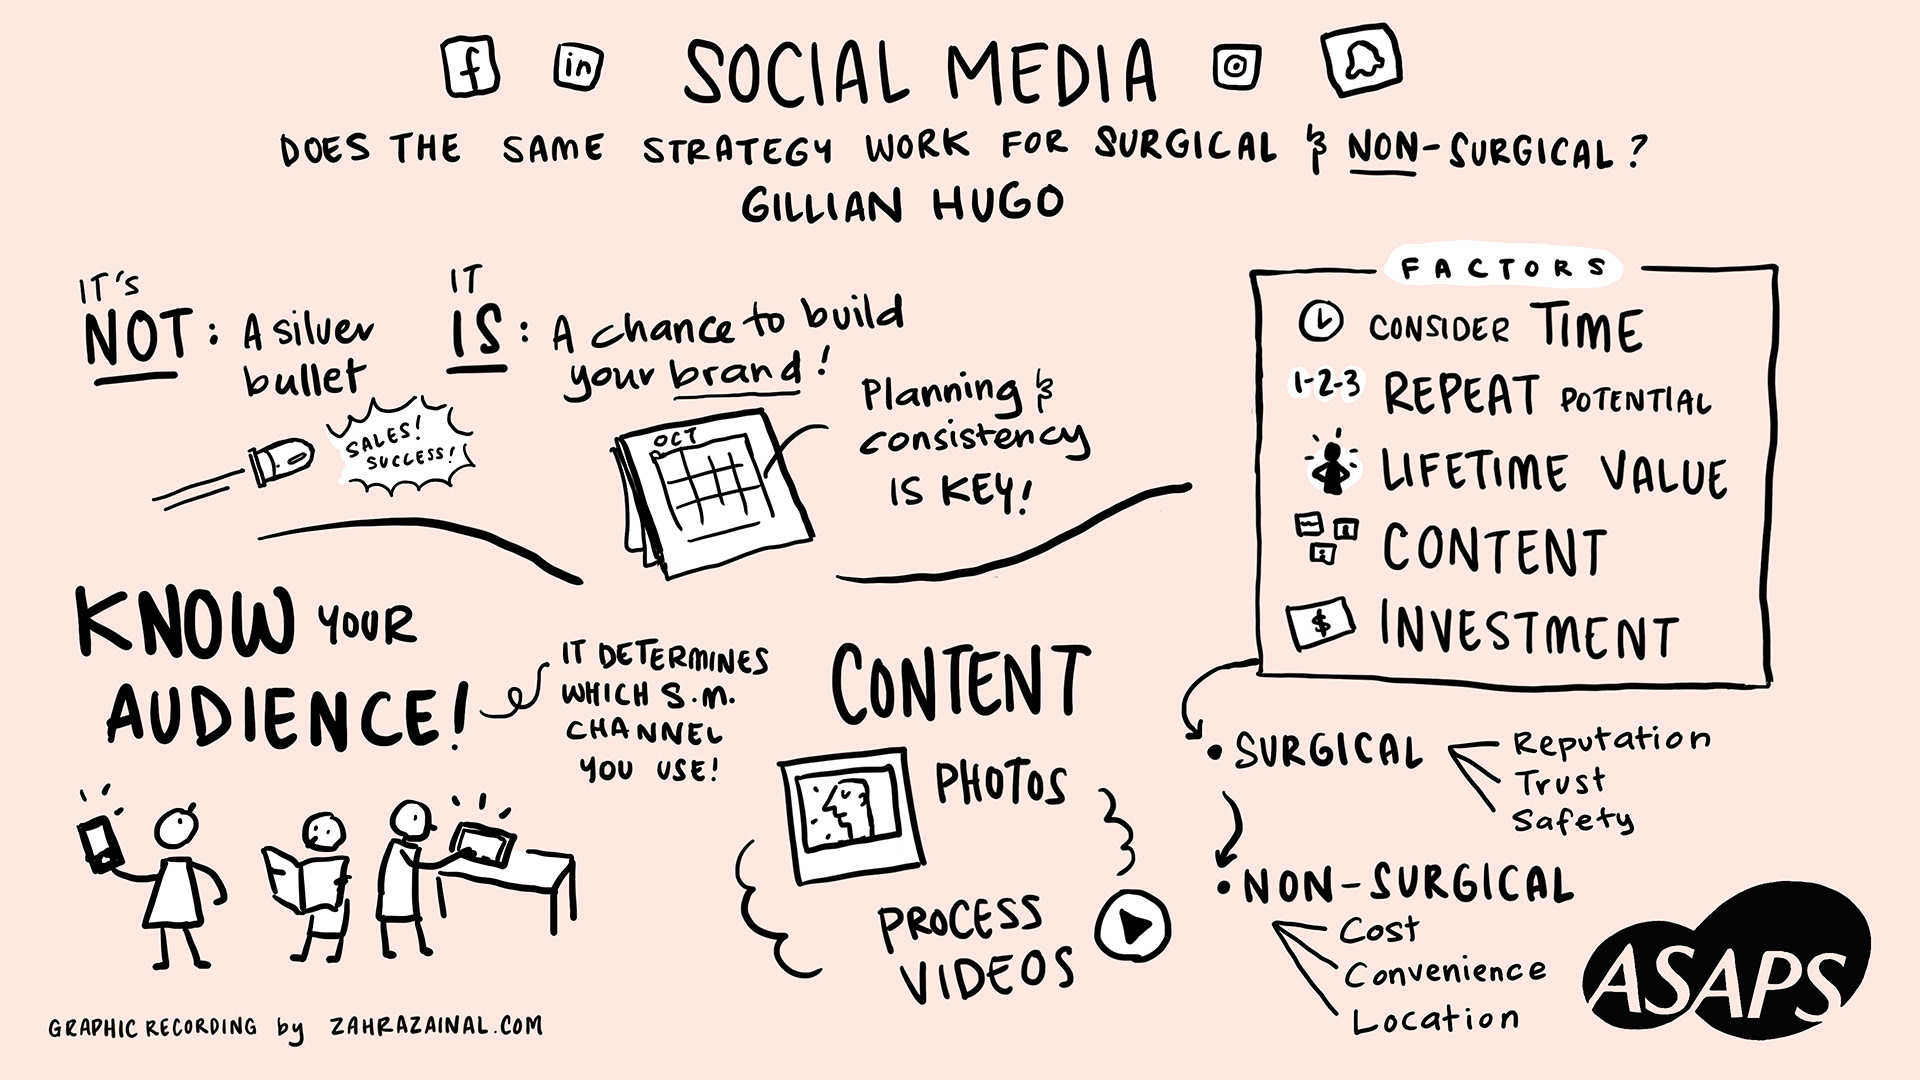 f in SOCIAL MEDIA
DOES THE SAME STRATEGY WORK FOR SURGICAL & NON-SURGICAL?
GILLIAN HUGO
IT'S
NOT: A silver
bullet
SALES!
SUCCESS!
IT
IS: A chance to build
your brand!
OCT
Planning &
consistency
IS KEY!
FACTORS
CONSIDER TIME
1-2-3 REPEAT POTENTIAL
LIFETIME VALUE
CONTENT
$ INVESTMENT
KNOW YOUR
AUDIENCE!
IT DETERMINES
WHICH S.M.
CHANNEL
YOU USE!
CONTENT
PHOTOS
PROCESS
VIDEOS
• SURGICAL
Reputation
Trust
Safety
• NON-SURGICAL
Cost
Convenience
Location
ASAPS
GRAPHIC RECORDING by ZAHRAZAINAL.COM